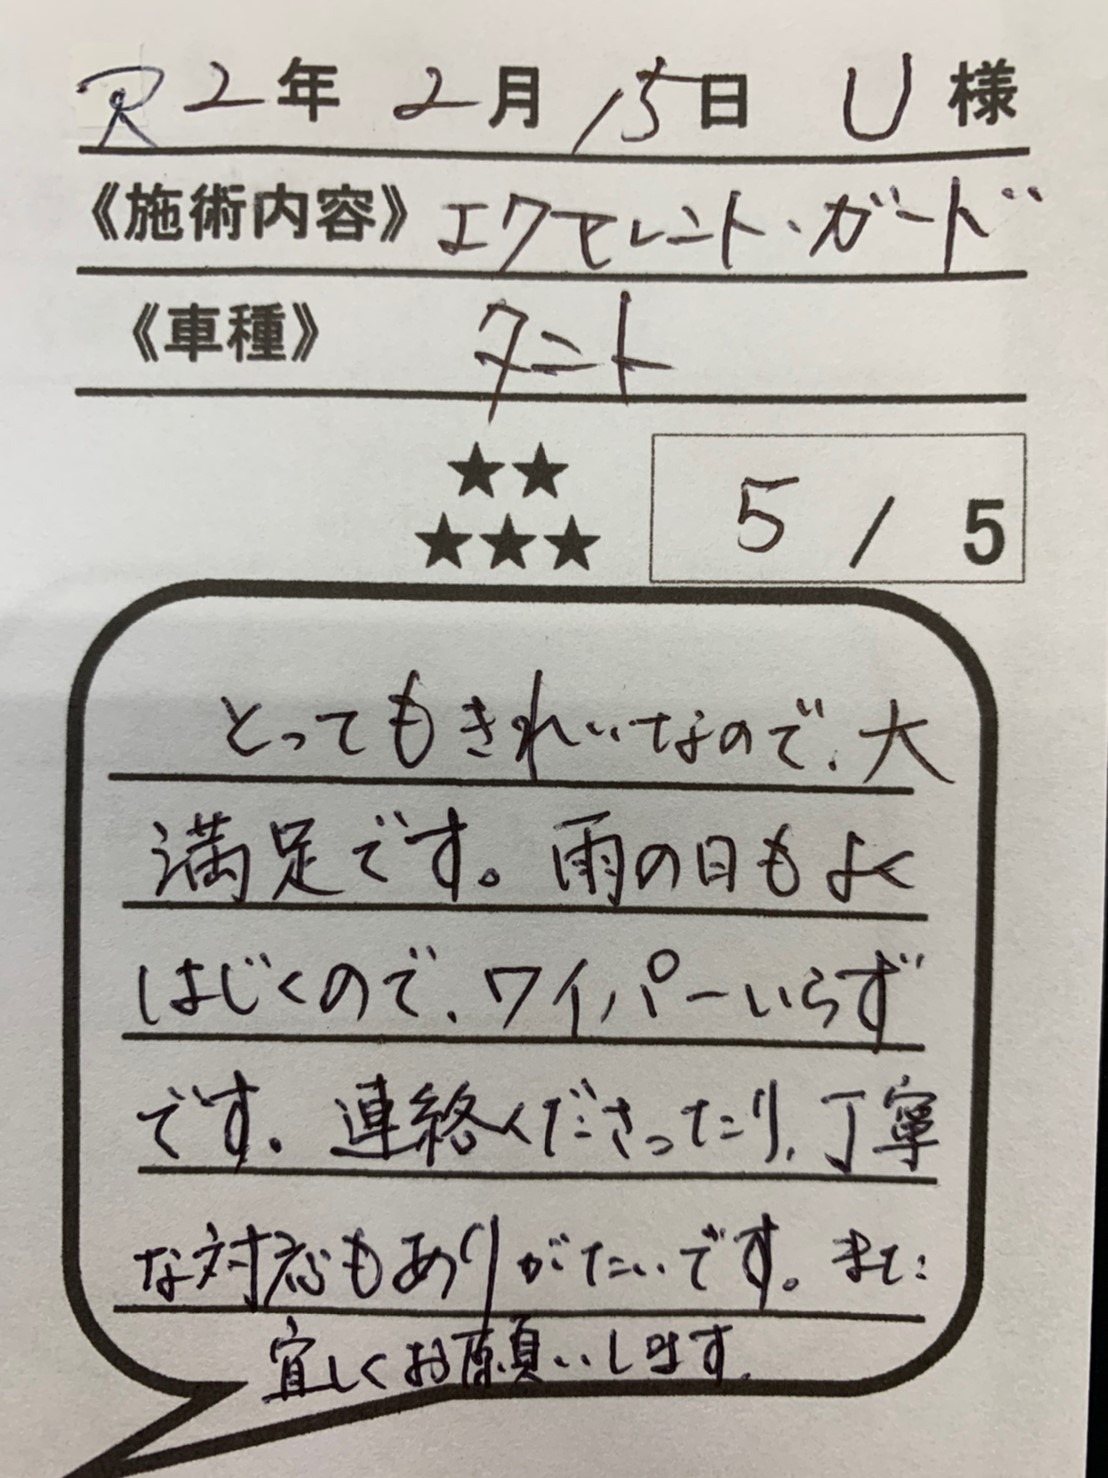 R2年 2月 15日 U 様
《施術内容》 エクセレント・ガード
《車種》 タント
★★
★★★
5 / 5
とってもきれいなので、大
満足です。雨の日もよく
はじくので、ワイパーいらず
です。連絡くださったり、丁寧
な対応もありがたいです。また
宜しくお願いします。